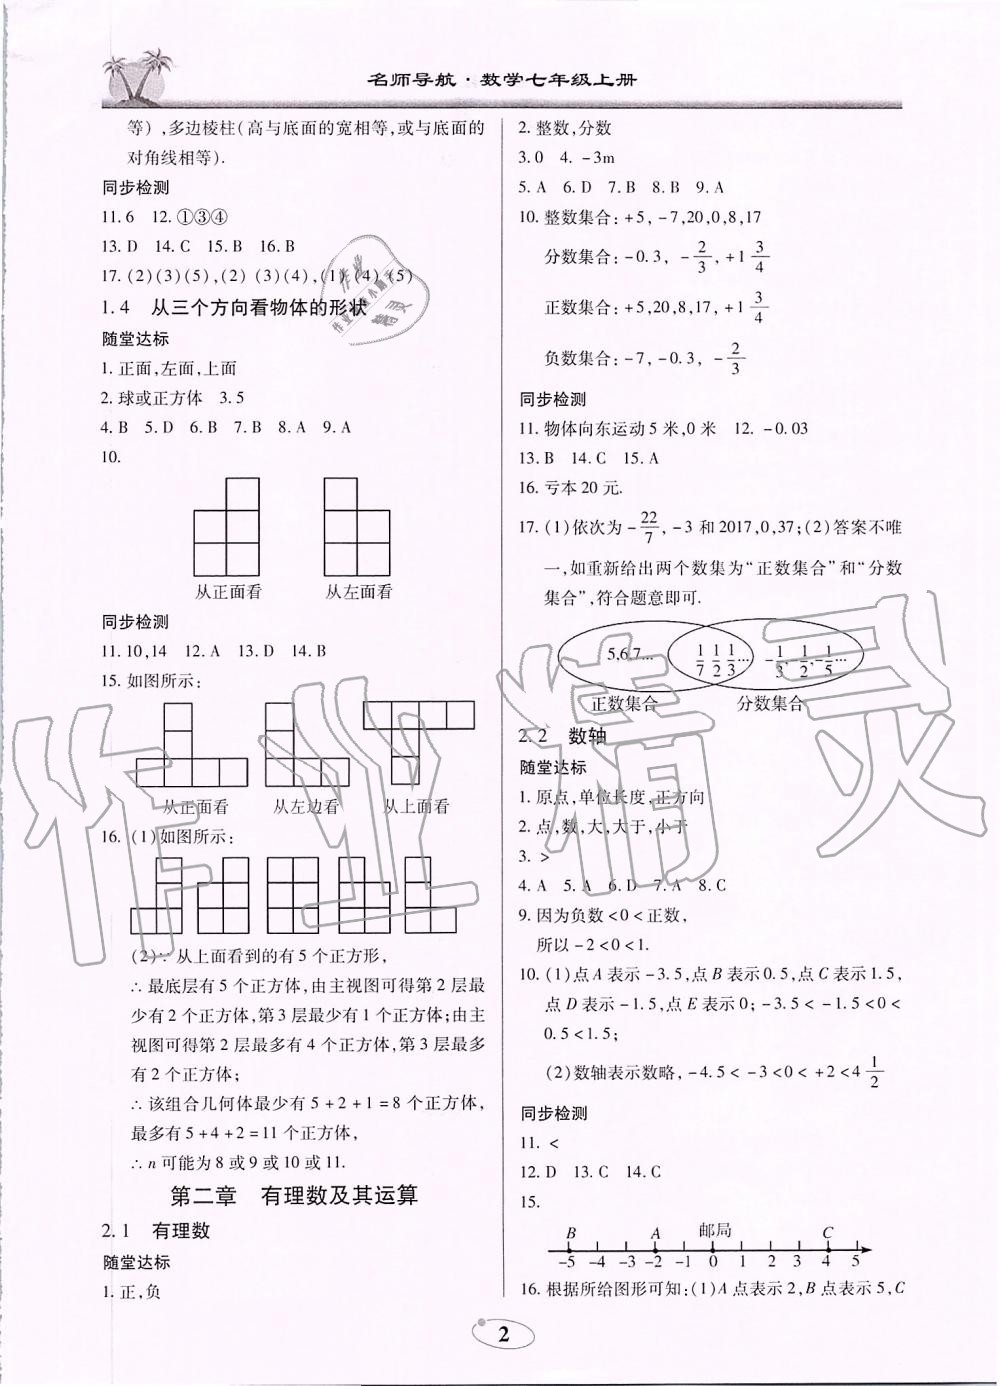 名师导航·数学七年级上册
等),多边棱柱(高与底面的宽相等,或与底面的
对角线相等).
同步检测
11.6 12.①③④
13. D 14. C 15. B 16. B
17.(2)(3)(5),(2) (3)(4),(1) (4) (5)
1.4 从三个方向看物体的形状
随堂达标
1. 正面,左面,上面
2. 球或正方体 3.5
4. B 5. D 6. B 7. B 8. A 9. A
10.
从正面看 从左面看
同步检测
11. 10,14 12. A 13. D 14. B
15. 如图所示:
从正面看 从左边看 从上面看
16. (1)如图所示:
(2)∵从上面看到的有5个正方形,
∴最底层有5个正方体,由主视图可得第2层最
少有2个正方体,第3层最少有1个正方体;由主
视图可得第2层最多有4个正方体,第3层最多
有2个正方体;
∴该组合几何体最少有5+2+1=8个正方体,
最多有5+4+2=11个正方体,
∴n可能为8或9或10或11.
第二章 有理数及其运算
2.1 有理数
随堂达标
1. 正,负
2. 整数,分数
3. 0 4. -3m
5. A 6. D 7. B 8. B 9. A
10. 整数集合:+5,-7,20,0,8,17
分数集合:-0.3,-2/3,+1 3/4
正数集合:+5,20,8,17,+1 3/4
负数集合:-7,-0.3,-2/3
同步检测
11. 物体向东运动5米,0米 12. -0.03
13. B 14. C 15. A
16. 亏本20元.
17. (1)依次为-22/7,-3和2017,0,37;(2)答案不唯
一,如重新给出两个数集为“正数集合”和“分数
集合”,符合题意即可.
5,6,7… 1/7 1/2 1/3… -1/3,-1/2,-1/5…
正数集合 分数集合
2.2 数轴
随堂达标
1. 原点,单位长度,正方向
2. 点,数,大,大于,小于
3. >
4. A 5. A 6. D 7. A 8. C
9. 因为负数<0<正数,
所以-2<0<1.
10. (1)点A表示-3.5,点B表示0.5,点C表示1.5,
点D表示-1.5,点E表示0;-3.5<-1.5<0<
0.5<1.5;
(2)数轴表示数略,-4.5<-3<0<+2<4 1/2
同步检测
11. <
12. D 13. C 14. C
15.
B A 邮局 C
-5 -4 -3 -2 -1 0 1 2 3 4 5
16. 根据所给图形可知:(1)A点表示2,B点表示5,C
2
作业精灵